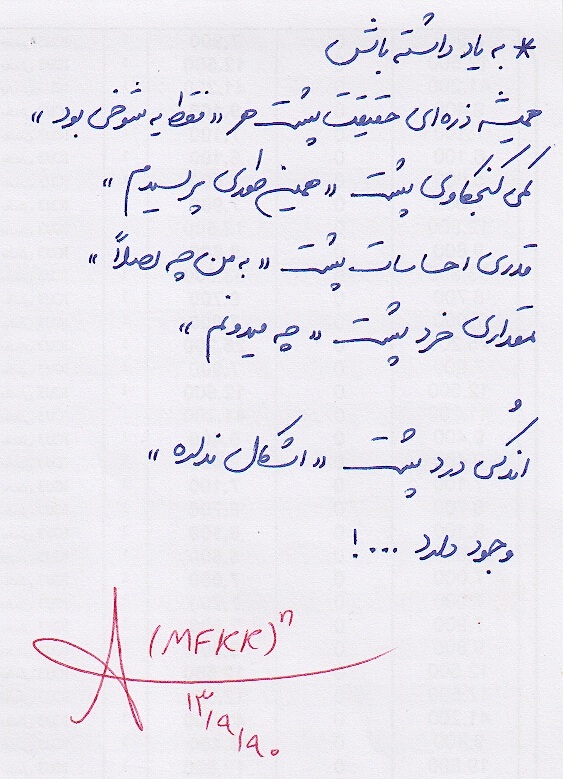 * به یاد داشته باش
همیشه ذره ای حقیقت پشت هر «فقط یه شوخی بود»
کمی کنجکاوی پشت «همین طوری پرسیدم»
قدری احساسات پشت «به من چه اصلاً»
مقداری خرد پشت «چه میدونم»
و
اندکی درد پشت «اشکال نداره»
وجود دارد ...!
(MFKK)ⁿ
۱۳/۹/۹۰